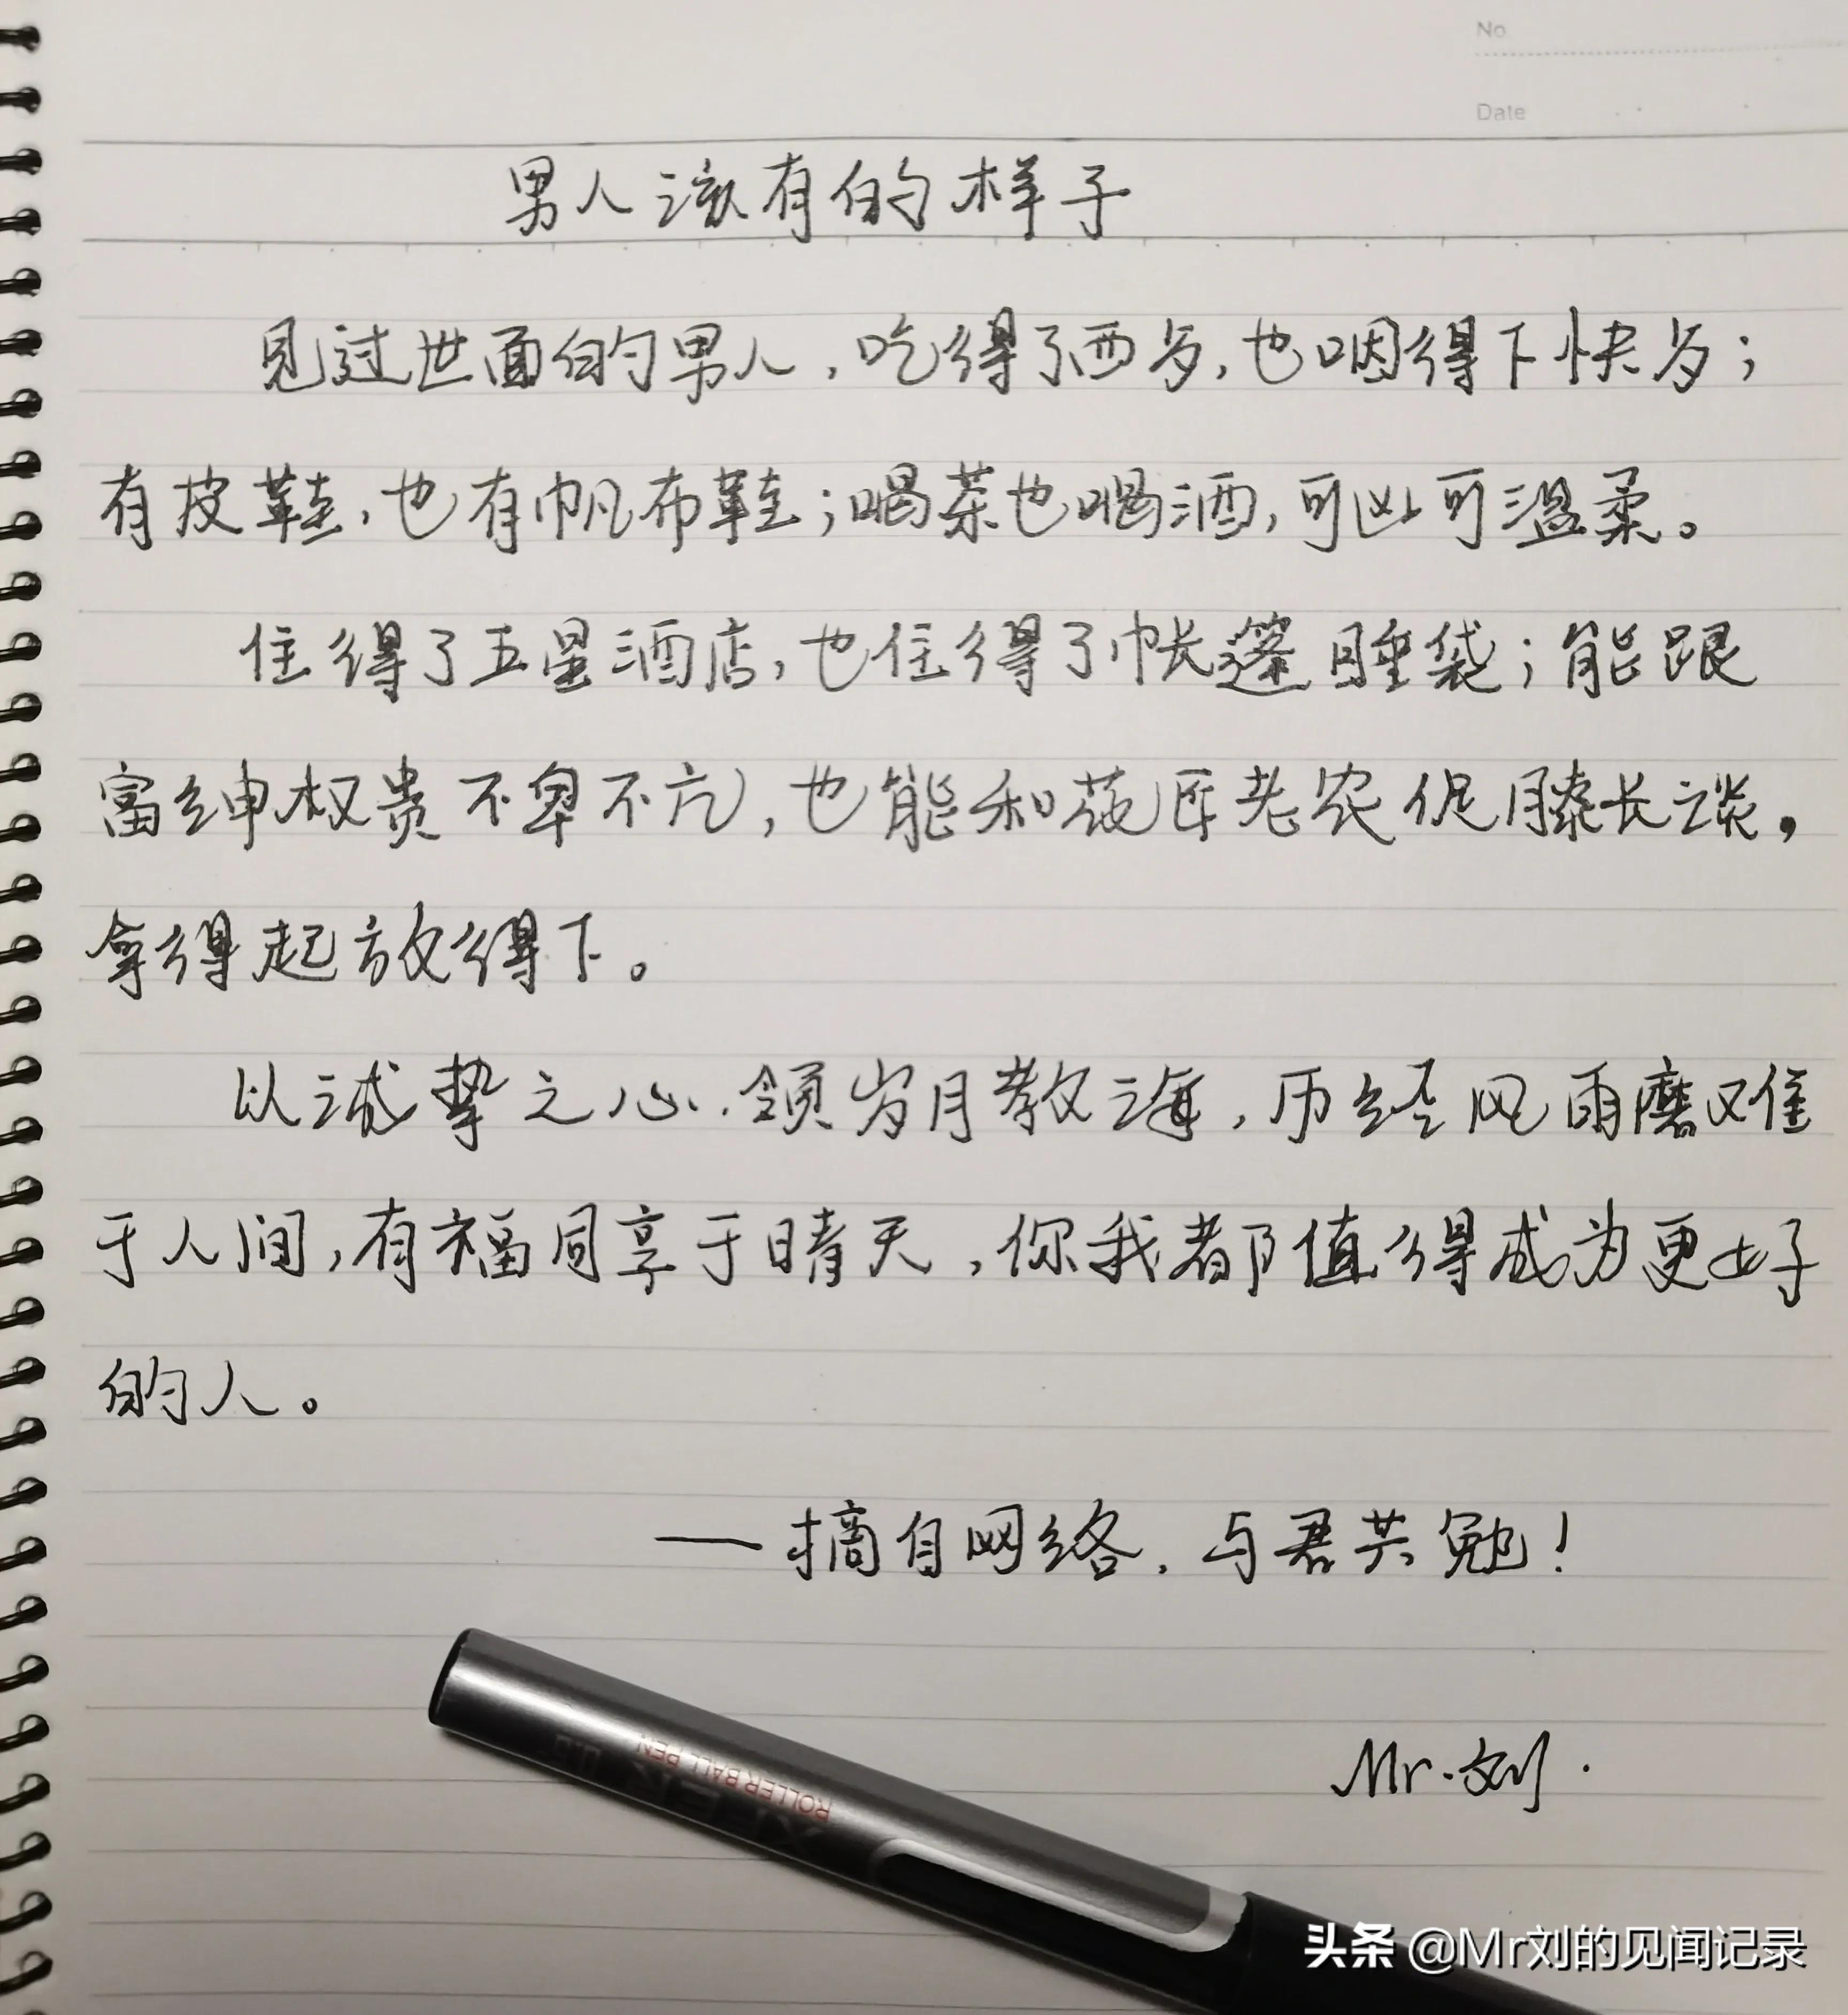 No
Date
男人该有的样子
见过世面的男人，吃得了西多，也咽得下快多；
有皮鞋，也有帆布鞋；喝茶也喝酒，可凶可温柔。
住得了五星酒店，也住得了帐篷睡袋；能跟
富绅权贵不卑不亢，也能和花匠老农促膝长谈，
拿得起放得下。
以诚挚之心，领岁月教诲，历经风雨磨难
于人间，有福同享于晴天，你我都值得成为更好
的人。
—摘自网络，与君共勉！
Mr.刘.
ROLLER BALL PEN
头条 @Mr刘的见闻记录